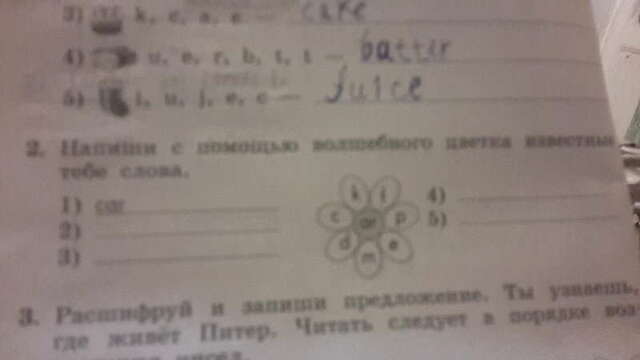 3) k, c, a, e — cake
4) u, e, r, b, t, t — batter
5) i, u, j, e, c — juice
2. Напиши с помощью волшебного цветка известные
тебе слова.
1) car
2)
3)
k f
c ar p
d e
m
4)
5)
3. Расшифруй и запиши предложение. Ты узнаешь,
где живёт Питер. Читать следует в порядке воз-
чисел.